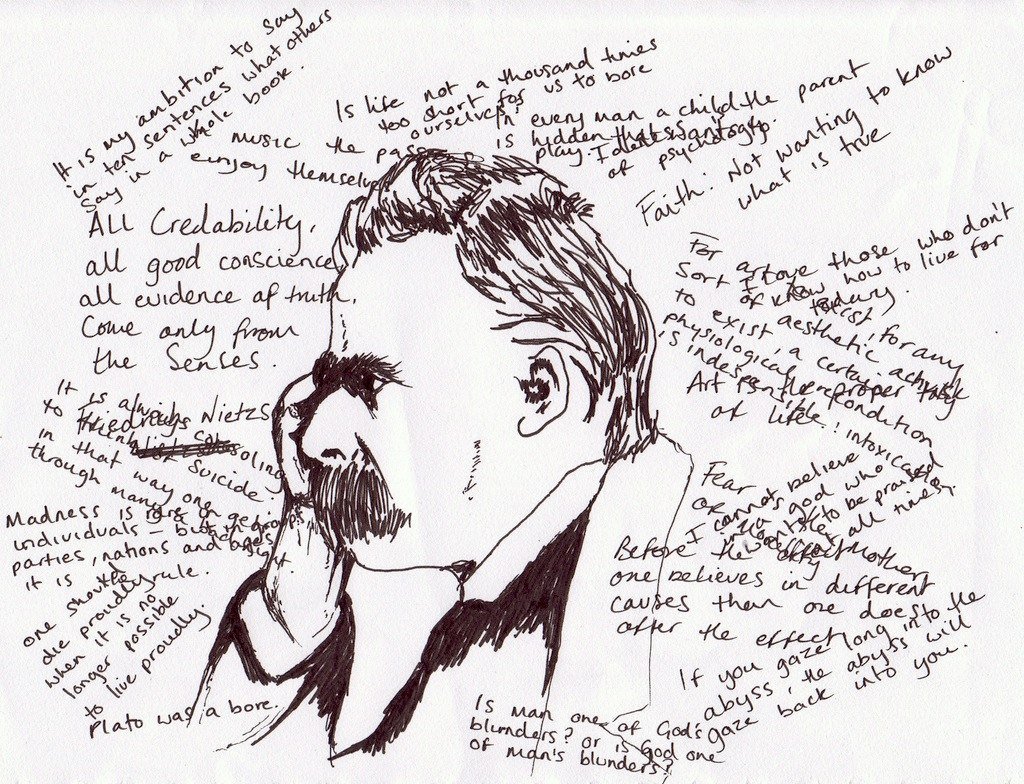 It is my ambition to say
in ten sentences what others
say in a whole
book.
Is life not a thousand times
too short for us to bore
ourselves?
in every man a child
is hidden that wants to
play.
the parent
of psychology.
music the
enjoy themselve
Faith: Not wanting to know
what is true
All Credability,
all good conscience,
all evidence of truth,
Come only from
the Senses.
I love those who don't
know how to live for
today.
For art
to exist, for any
sort of aesthetic activity
to exist, a certain
physiological
is indespensible
intoxication
Art is the proper task
of life.
It is always
to think of Suicide.
in that way one
through many
Friedrich Nietzsche
Madness is rare in
individuals – but in groups,
parties, nations and ages
it is the rule.
one should
die proudly
when it is no
longer possible
to
live proudly.
Plato was a bore.
I cannot believe
in a god who
wants to be praised
all the time.
Fear
of
Mother
Before the effect
one believes in different
causes than one does
after the effect
If you gaze long into the
abyss, the abyss will
gaze back into you.
Is man one of God's
blunders? or is God one
of man's blunders?